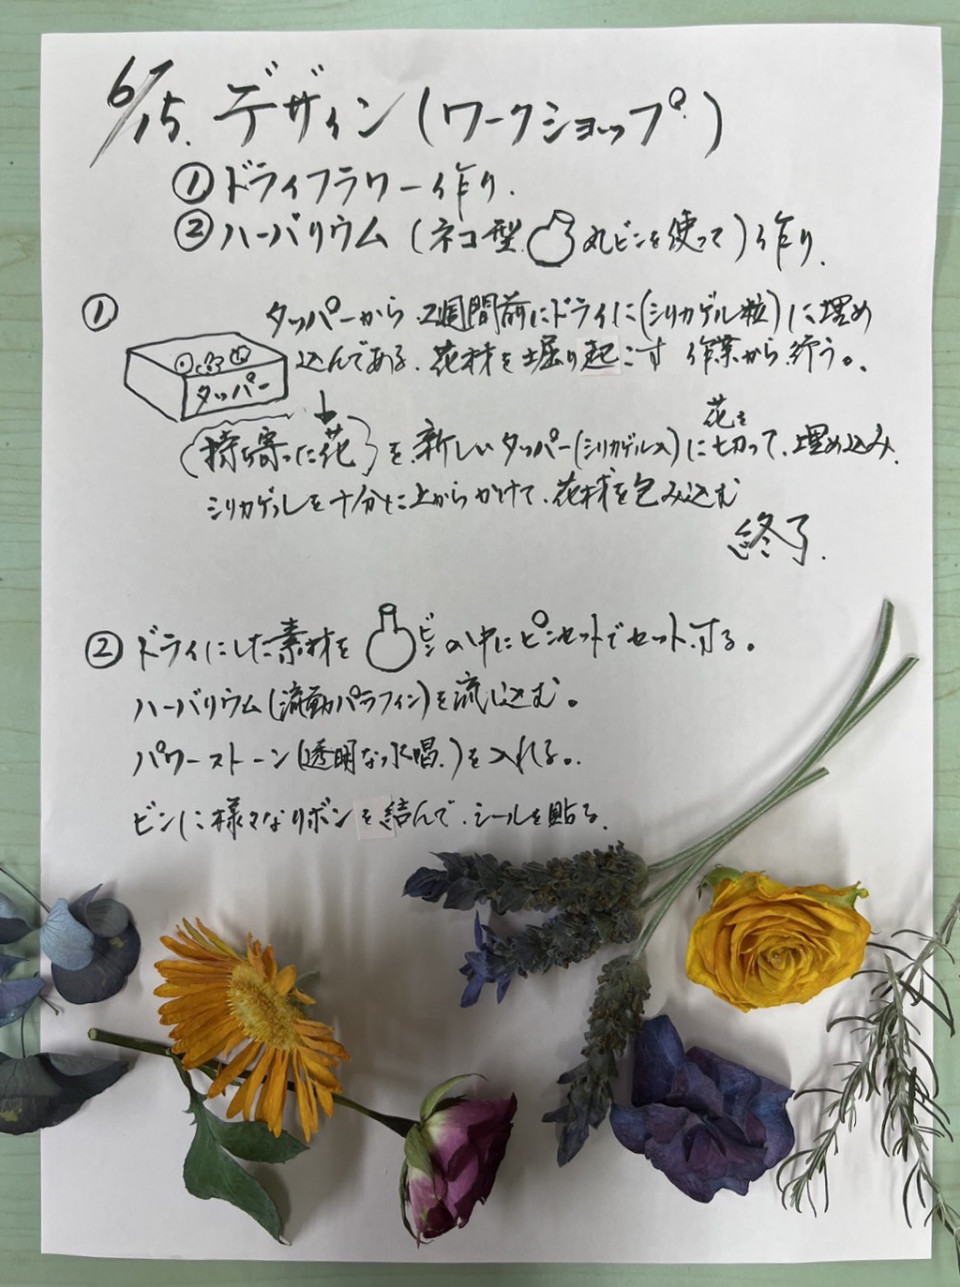 6/15. デザイン(ワークショップ)
①ドライフラワー作り.
②ハーバリウム(ネコ型 丸ビンを使って)作り.
①
タッパーから.2週間前にドライに(シリカゲル粒)に埋め
込んである.花材を土堀り起こす 作業から行う。
タッパー
花を
(持ち寄った花)を.新しいタッパー(シリカゲル入)に切って.埋め込み.
シリカゲルを十分に上からかけて.花材を包み込む
終了.
②ドライにした素材を ビンの中にピンセットでセットする。
ハーバリウム(流動パラフィン)を流し込む。
パワーストーン(透明な水唱.)を入れる。
ビンに様々なリボンを結んで.シールを貼る.